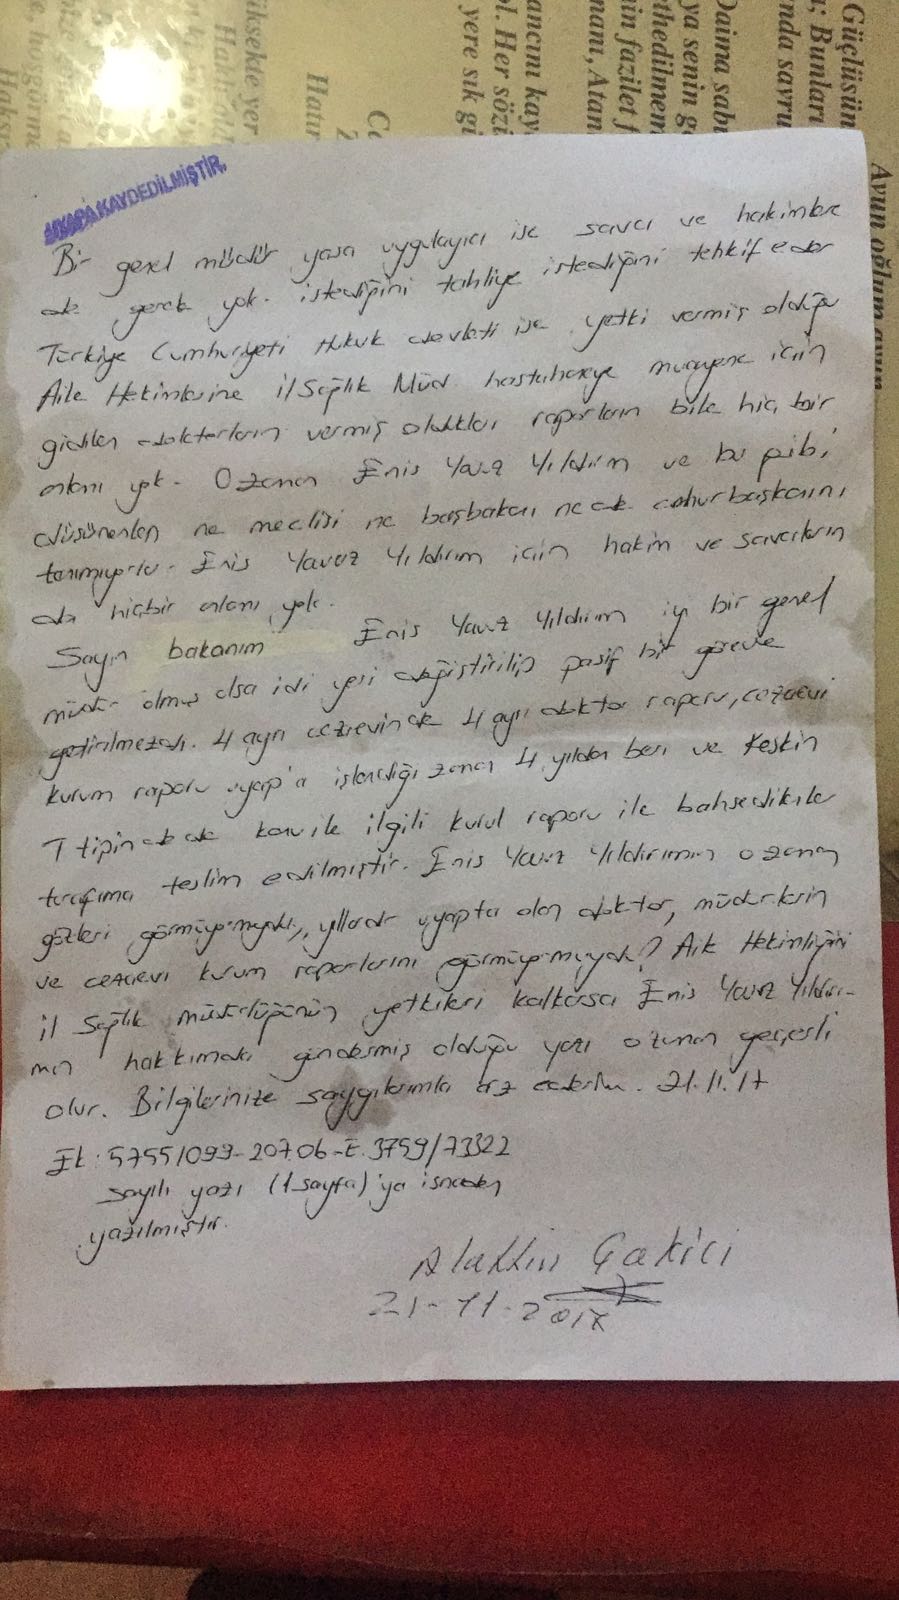 Güçlüsün
; Bunları
nda savru
Avun oğlum avun
Daima sabı
ya senin g
thedilmem
in fazilet f
nanı, Atan
ancını kay
ol. Her sözü
yere sık gi
Hatır
iksekte yer
UYAPA KAYDEDİLMİŞTİR.
Bir genel müdür yasa uygulayıcı ise savcı ve hakimlere
de gerek yok. istediğini tahliye istediğini tehkif eder
Türkiye Cumhuriyeti Hukuk devleti ise yetki vermiş olduğu
Aile Hekimlerine il Sağlık Müd. hastahaneye muayene için
gidilen doktorların vermiş oldukları raporların bile hiç bir
anlanı yok. O zaman Enis Yavuz Yıldırım ve bu gibi
düşünenler ne meclisi ne başbakanı ne de cumhurbaşkanını
tanımıyorlar. Enis Yavuz Yıldırım için hakim ve savcıların
da hiçbir anlanı yok.
Sayın bakanım Enis Yavuz Yıldırım iyi bir genel
müdür olmuş olsa idi yeri değiştirilip pasif bir göreve
getirilmezdi. 4 ayrı cezaevinde 4 ayrı doktor raporu, cezaevi
kurum raporu uyap'a işlendiği zaman 4 yıldan beri ve Keskin
T tipinde de konu ile ilgili kurul raporu ile
tarafıma teslim edilmiştir. Enis Yavuz Yıldırımın o zaman
gözleri görmüyormuydu, yıllardır uyapta olan doktor, müdürlerin
ve cezaevi kurum raporlarını görmüyormuydu? Aile Hekimliğini
il Sağlık müdürlüğünün yetkileri kalkarsa Enis Yavuz Yıldırı-
mın hakkımda göndermiş olduğu yazı o zaman geçerli
olur. Bilgilerinize saygılarımla arz ederim. 21.11.17
Ek: 57551099-207.06-E.3759/73322
sayılı yazı (1 sayfa)'ya isnaden
yazılmıştır.
Alattin Çakici
21-11-2017